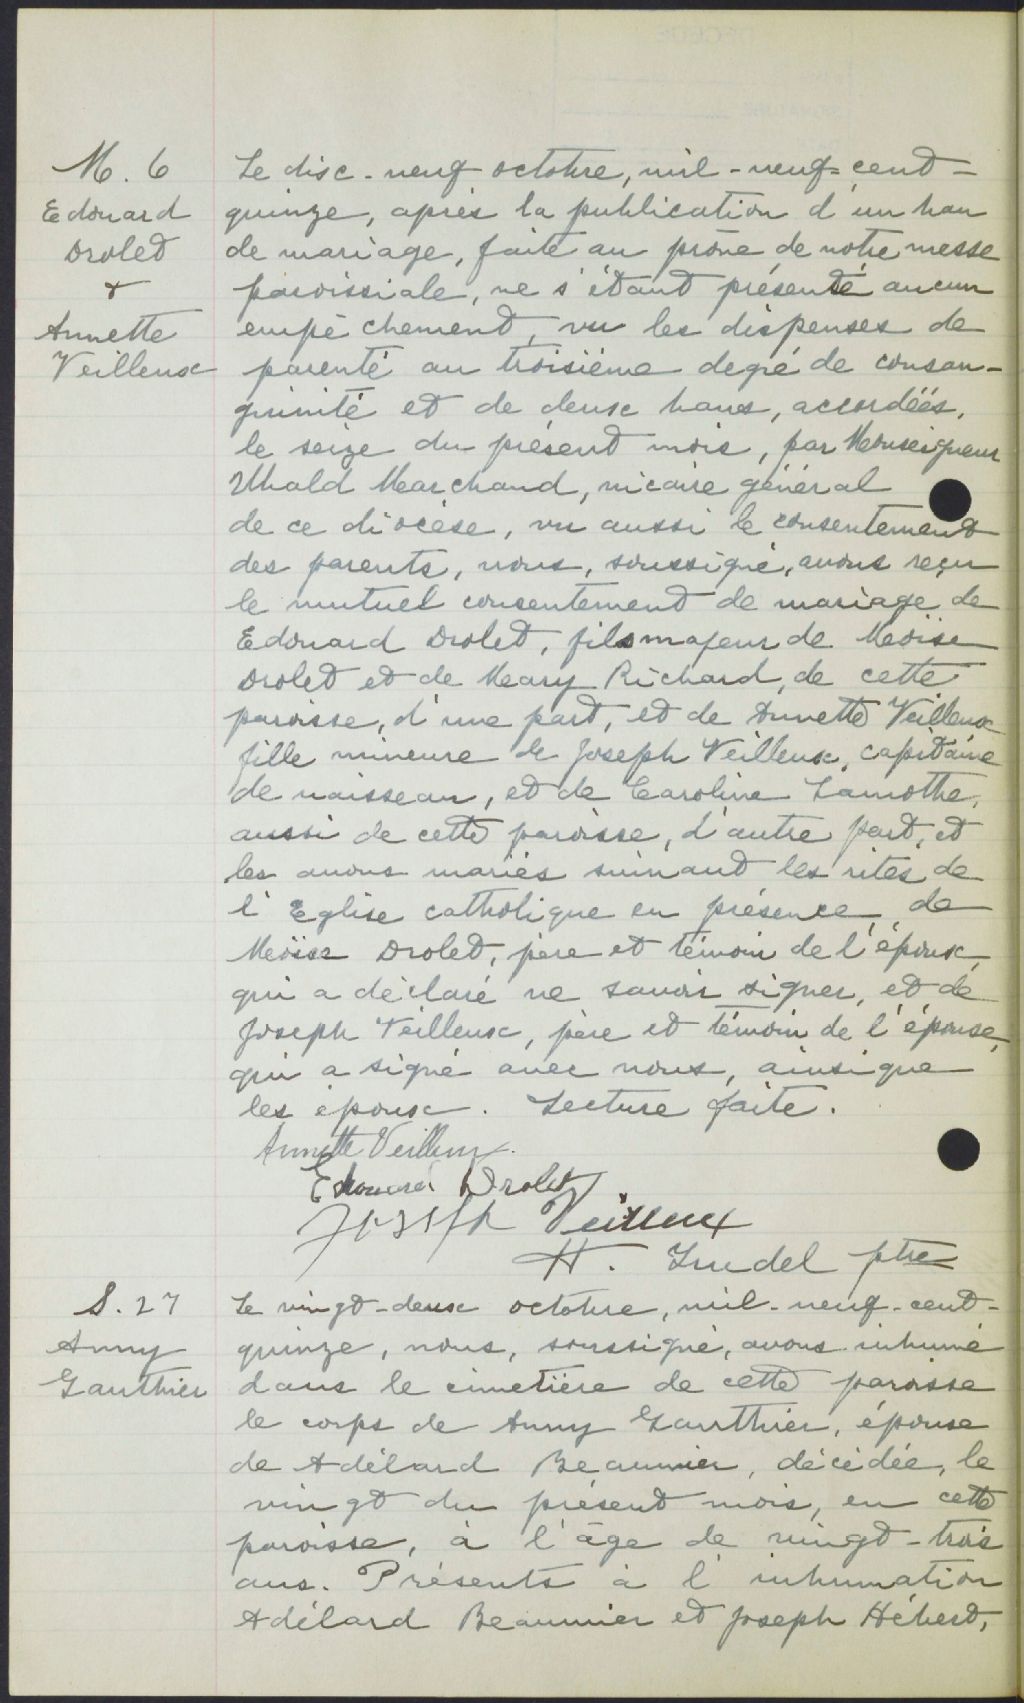 M. 6
Edouard
Drolet
&
Annette
Veilleux
Le dix-neuf octobre, mil-neuf-cent-
quinze, après la publication d'un ban
de mariage, faite au prône de notre messe
paroissiale, ne s'étant présenté aucun
empêchement, vu les dispenses de
parenté au troisième degré de consan-
guinité et de deux bans, accordées,
le seize du présent mois, par Monseigneur
Ubald Marchand, vicaire général
de ce diocèse, vu aussi le consentement
des parents, nous, soussigné, avons reçu
le mutuel consentement de mariage de
Edouard Drolet, fils majeur de Moïse
Drolet et de Mary Richard, de cette
paroisse, d'une part, et de Annette Veilleux
fille mineure de Joseph Veilleux, capitaine
de vaisseau, et de Caroline Lamothe,
aussi de cette paroisse, d'autre part, et
les avons mariés suivant les rites de
l'Eglise catholique en présence de
Moïse Drolet, père et témoin de l'époux,
qui a déclaré ne savoir signer, et de
Joseph Veilleux, père et témoin de l'épouse,
qui a signé avec nous, ainsi que
les époux. Lecture faite.
Annette Veilleux.
Edouard Drolet
Joseph Veilleux
H. Trudel ptre
S. 27
Anny
Gauthier
Le vingt-deux octobre, mil-neuf-cent-
quinze, nous, soussigné, avons inhumé
dans le cimetière de cette paroisse
le corps de Anny Gauthier, épouse
de Adélard Beaumier, décédée, le
vingt du présent mois, en cette
paroisse, à l'âge de vingt-trois
ans. Présents à l'inhumation
Adélard Beaumier et Joseph Hébert,